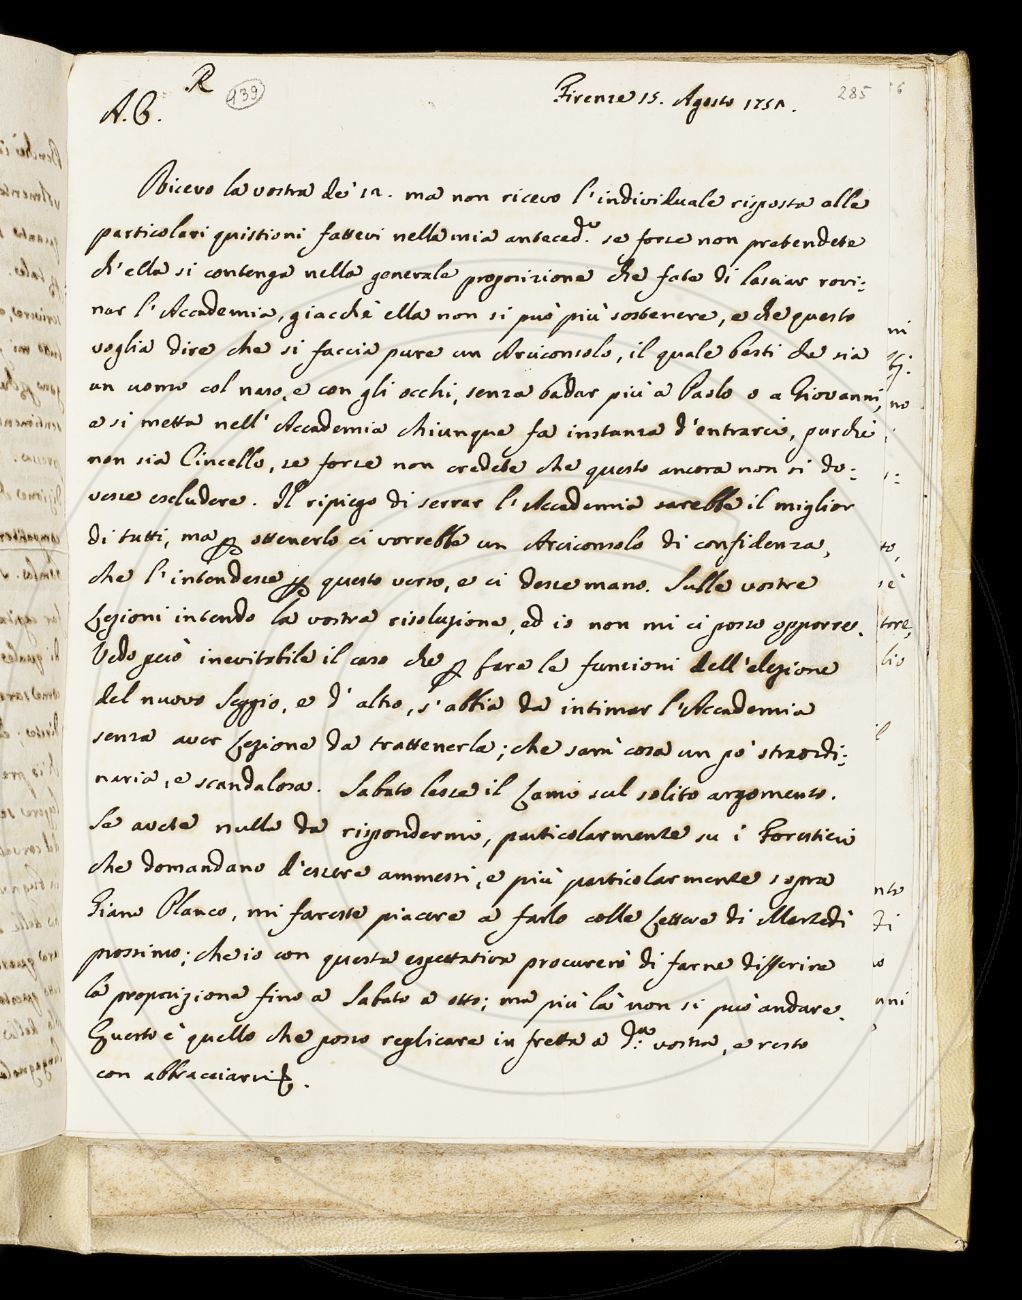 R
439
285
A. C.
Firenze 15. Agosto 1751.
Ricevo la vostra de' 12. ma non ricevo l'individuale risposta alle
particolari quistioni fattevi nella mia anteced.e se forse non pretendete
ch'ella si contenga nella generale proposizione che fate di lasciar rovi:
nar l'Accademia, giacchè ella non si può più sostenere, e che questo
voglia dire che si faccia pure un Arciconsolo, il quale basti che sia
un uomo col naso, e con gli occhi, senza badar più a Paolo o a Giovanni,
e si metta nell'Accademia chiunque fa instanza d'entrarci, purchè
non sia Cincello, se forse non credete che questo ancora non si do:
vesse escludere. Il ripiego di serrar l'Accademia sarebbe il miglior
di tutti, ma p ottenerlo ci vorrebbe un Arciconsolo di confidenza,
che l'intendesse p questo verso, e ci desse mano. Sulle vostre
Lezioni intendo la vostra risoluzione, ed io non mi ci posso opporre.
Vedo però inevitabile il caso che p fare le funzioni dell'elezione
del nuovo Seggio, e d'altro, s'abbia da intimar l'Accademia
senza aver Lezione da trattenerla; che sarà cosa un pò straordi:
naria, e scandalosa. Sabato lesse il Lami sul solito argomento.
Se avete nulla da rispondermi, particolarmente su i Forestieri
che domandano d'essere ammessi, e più particolarmente sopra
Giano Planco, mi fareste piacere a farlo colle Lettere di Martedì
prossimo; che io con questa espettativa procurerò di farne differire
la proposizione fino a Sabato a otto; ma più là non si può andare.
Questo è quello che posso replicare in fretta a d.a vostra, e resto
con abbracciarvi